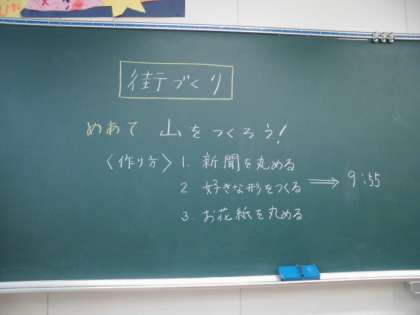 街づくり
めあて 山をつくろう!
〈作り方〉 1. 新聞を丸める
2. 好きな形をつくる ⇒ 9:55
3. お花紙を丸める